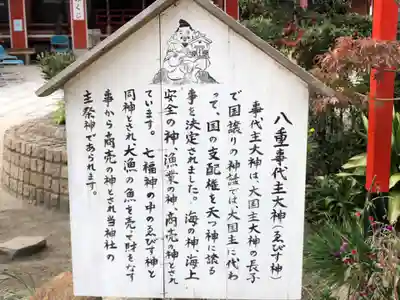 八重事代主大神(ゑびす神)
事代主大神は、大国主大神の長子
で国譲りの神話では、大国主に代わ
って、国の支配権を天つ神に譲る
事を決定されました。海の神、海上
安全の神、漁業の神、商売の神とされ
ています。七福神の中のゑびす神と
同神とされ大漁の魚を売って財をなす
事から商売の神とされ当神社の
主祭神であられます。